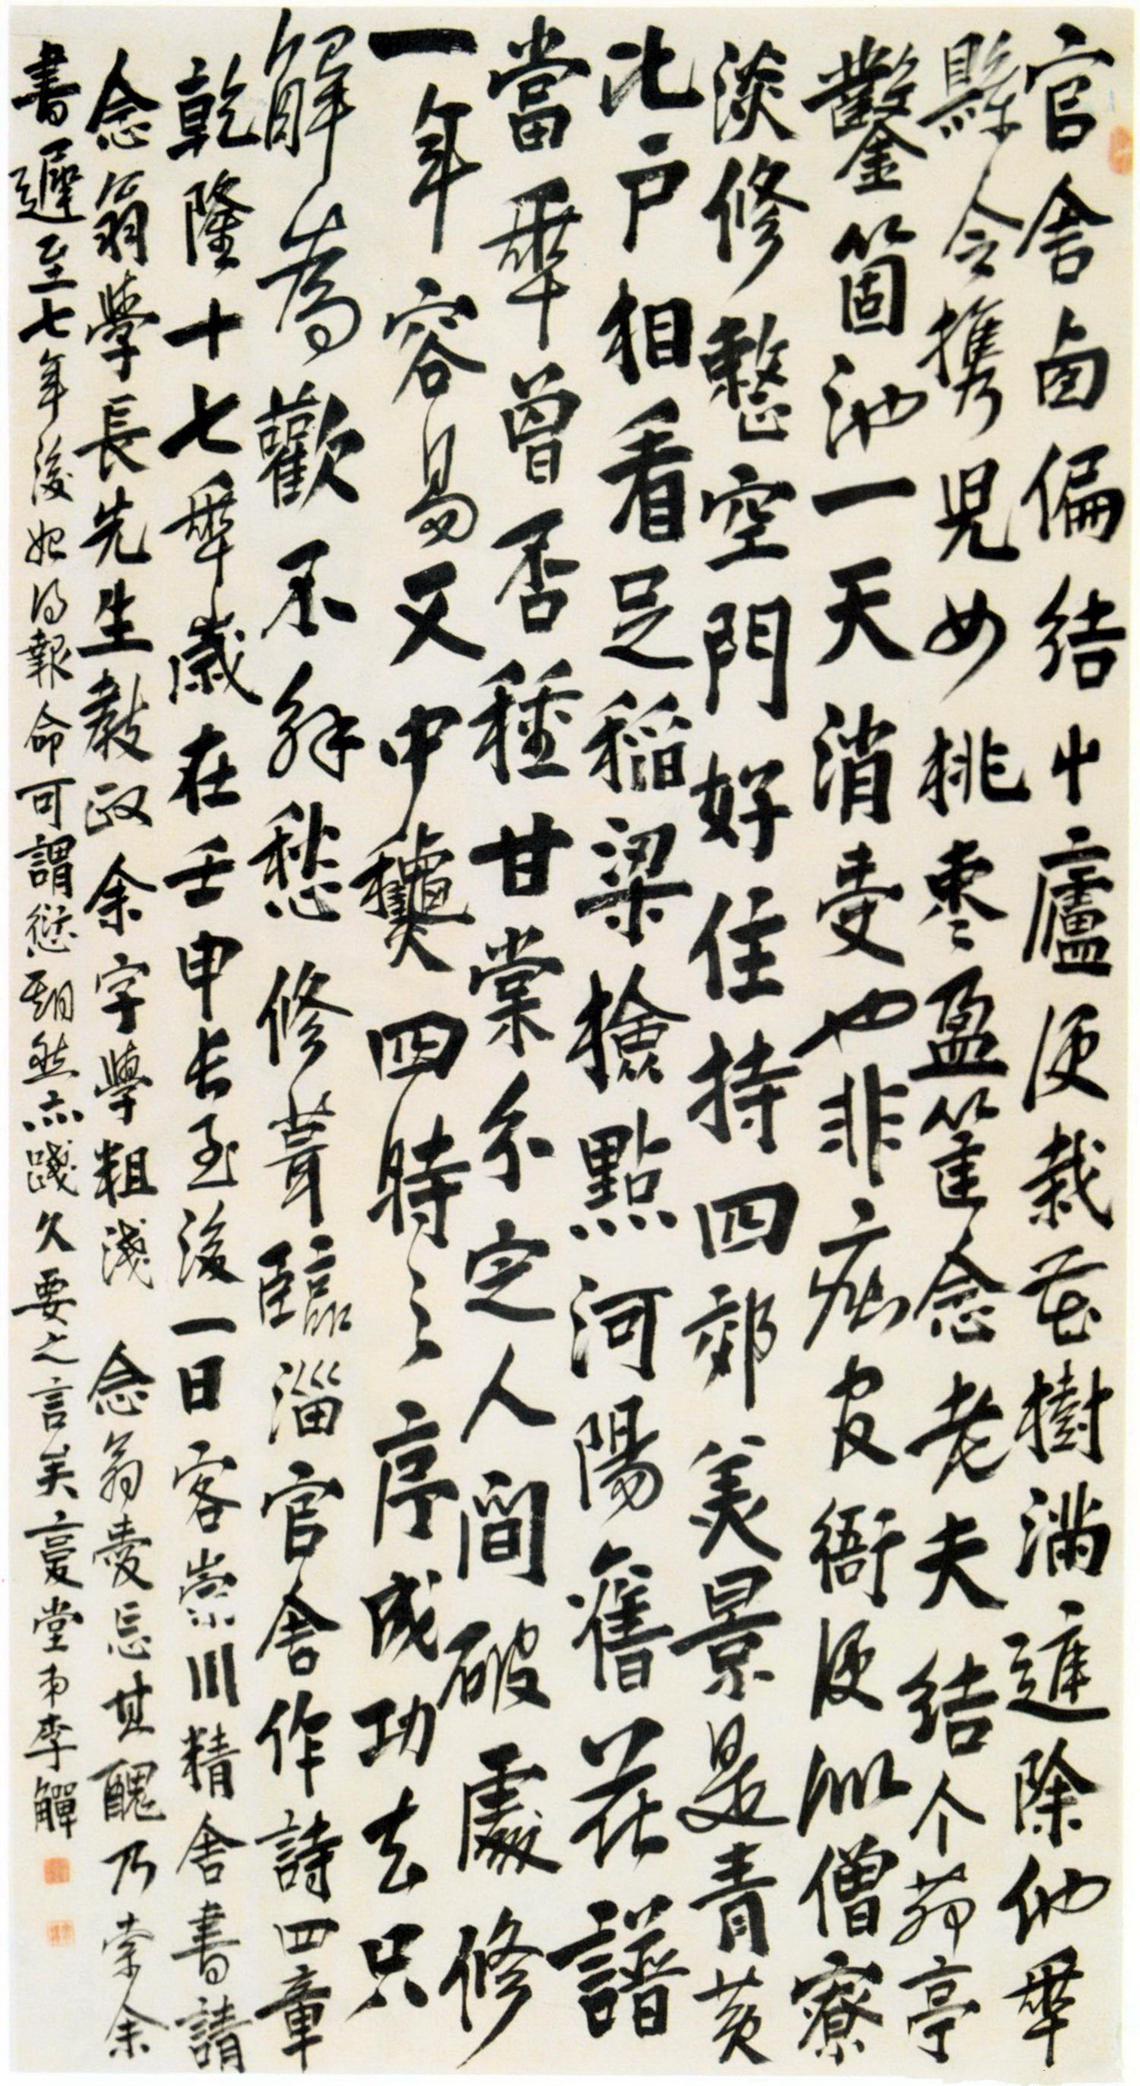 官舍卤偏結屮廬便栽花樹滿進除他年
縣令攜児女桃棗盈筐念老夫結个茆亭
鑿箇池一天消受也非疵官衙便似僧寮
淡修整空門好住持四郊美景是青黃
比戶相看足稻粱撿點河陽舊花譜
當年曾否種甘棠分定人間破處修
一年容易又中龝四時之序成功去只
解為歡不解愁修葺臨淄官舍作詩四章
乾隆十七年歲在壬申長至後一日客崇川精舍書請
念翁學長先生教政余字學粗淺念翁愛忘其醜乃索余
書遲至七年後始得報命可謂愆期然亦踐久要之言矣憂堂弟李觶